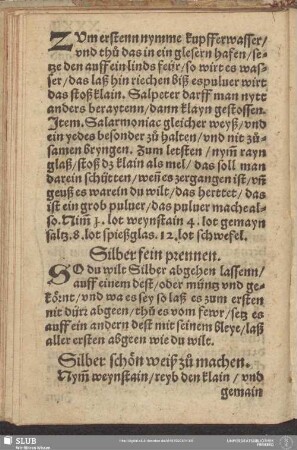 ZUm erstenn nymme kupfferwasser/
vnd thů das in ein glesern hafen/se
tze den auff ein linds feür/so wirt es was
ser/das laß hin riechen biß es puluer wirt
das stoß klain. Salpeter darff man nytt
anders beraytenn/dann klayn gestossen.
Item. Salarmoniac gleicher weyß/vnd
ein yedes besonder zů halten/vnd nit zů-
samen bryngen. Zum letsten/nym̄ rayn
glaß/stoß dz klain als mel/das soll man
darein schütten/weñ es zergangen ist/vñ
geuß es warein du wilt/das herttet/das
ist ein grob puluer/das puluer mache al-
so. Nim̄ 3. lot weynstain 4. lot gemayn
saltz. 8. lot spießglas. 12. lot schwefel.
Silber fein prennen.
SO du wilt Silber abgehen lassenn/
auff einem dest/oder müntz vnd ge-
kôrnt/vnd wa es sey so laß es zum ersten
nit dürr abgeen/thů es vom fewr/setz es
auff ein andern dest mit seinem bleye/laß
aller ersten abgeen wie du wilt.
Silber schôn weiß zů machen.
Nym̄ weynstain/reyb den klain/vnd
gemain
SLUB
Wir führen Wissen.